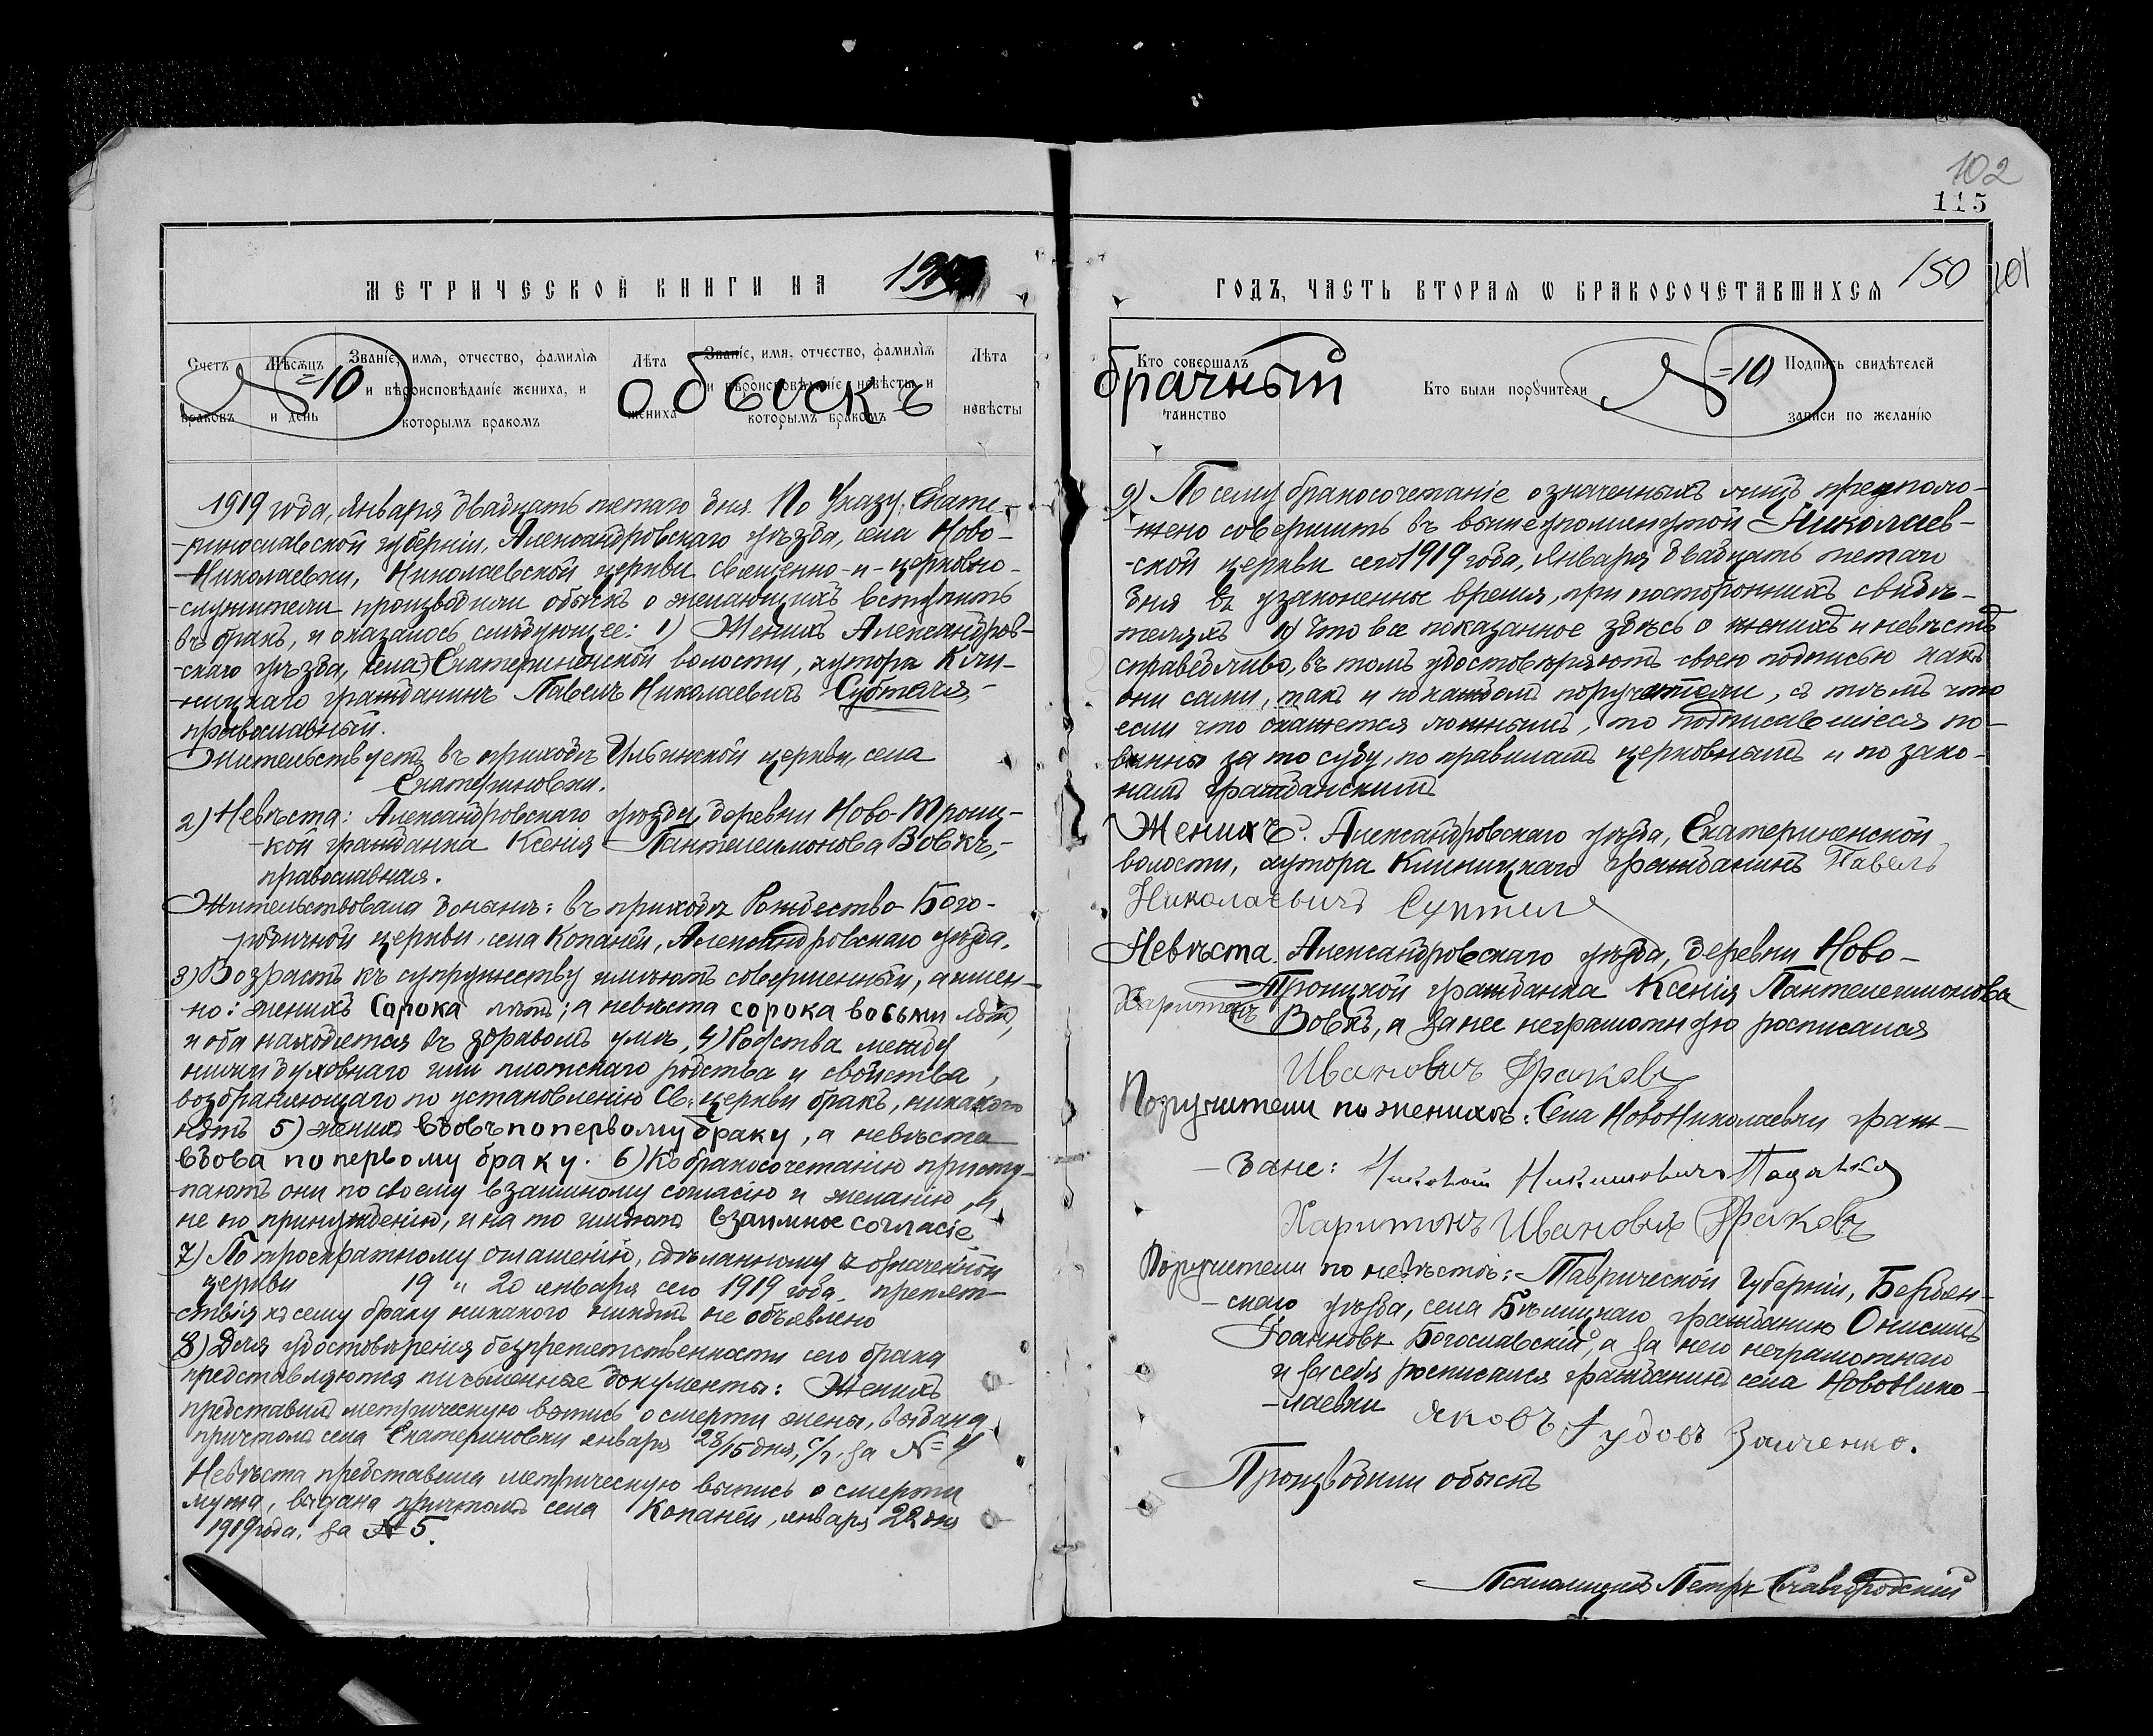 МЕТРИЧЕСКОЙ КНИГИ НА 19
Счетъ браковъ
Мѣсяцъ и день
Званіе, имя, отчество, фамилія и вѣроисповѣданіе жениха, и которымъ бракомъ
Лѣта жениха
Званіе, имя, отчество, фамилія и вѣроисповѣданіе невѣсты и которымъ бракомъ
Лѣта невѣсты
№=10 Обыскъ
1919 года, Января двадцать пятаго дня. По Указу: Екате-
-ринославской губерніи, Александровскаго уѣзда, села Ново-
-Николаевки, Николаевской церкви священно-и-церковно-
-служители производили обыскъ о желающихъ вступить
въ бракъ, и оказалось слѣдующее: 1) Женихъ Александров-
-скаго уѣзда, (села) Екатериненской волости, хутора Кли-
-ницкаго гражданинъ Павелъ Николаевичъ Субтеля,-
православный.
Жительствуетъ въ приходѣ Ильинской церкви, села
Екатериновки.
2) Невѣста: Александровскаго уѣзда, деревни Ново-Троиц-
-кой гражданка Ксенія Пантелеимонова Вовкъ,-
православная.
Жительствовала донынѣ: въ приходѣ Рождество-Бого-
родичной церкви, села Копаней, Александровскаго уѣзда.
3) Возрастъ къ супружеству имѣютъ совершенный, а имен-
но: женихъ сорока лѣтъ; а невѣста сорока восьми лѣтъ,
и оба находятся въ здравомъ умѣ. 4) Родства между
ними духовнаго или плотскаго родства и свойства,
возбраняющаго по установленію Св. церкви бракъ, никакого
нѣтъ 5) женихъ вдовъ по первому браку, а невѣста
вдова по первому браку. 6) Къ бракосочетанію присту-
-паютъ они по своему взаимному согласію и желанію, и
не по принужденію, и на то имѣютъ взаимное согласіе
7) По троекратному оглашенію, сдѣланному въ означенной
церкви 19 и 20 января сего 1919 года, препят-
ствія къ сему браку никакого никѣмъ не объявлено
8) Для удостовѣренія безпрепятственности сего брака
представляются письменные документы: Женихъ
представилъ метрическую выпись о смерти жены, выдана
причтомъ села Екатериновки января 28/15 дня, с/г. за №=4
Невѣста представила метрическую выпись о смерти
мужа, выдана причтомъ села Копаней, января 22 дня
1919 года. за № 5.
102
115
150 101
ГОДЪ, ЧАСТЬ ВТОРАЯ Ѡ БРАКОСОЧЕТАВШИХСЯ
Кто совершалъ таинство
Кто были поручители
Подпись свидѣтелей записи по желанію
брачный №=10
9) По сему бракосочетаніе означенныхъ лицъ предполо-
-жено совершить въ вышеупомянутой Николаев-
-ской церкви сего 1919 года, Января двадцать пятаго
дня въ узаконенное время, при постороннихъ свидѣ-
теляхъ 10) Что все показанное здѣсь о женихѣ и невѣстѣ
справедливо, въ томъ удостовѣряютъ своею подписью какъ
они сами, такъ и по каждомъ поручители, съ тѣмъ что
если что окажется ложнымъ, то подписавшіеся по-
винны за то суду, по правиламъ церковнымъ и по зако-
намъ гражданскимъ
Женихъ: Александровскаго уѣзда, Екатериненской
волости, хутора Клиницкаго гражданинъ Павелъ
Николаевичъ Суптеля
Невѣста. Александровскаго уѣзда, деревни Ново-
-Троицкой гражданка Ксенія Пантелеимонова
Вовкъ, а за нее неграмотную росписался Харитонъ
Ивановичъ Ераковъ
Поручители по женихѣ: Села НовоНиколаевки граж-
-дане: Николай Никитовичъ
Харитонъ Ивановичъ Ераковъ
Поручители по невѣстѣ: Таврической губерніи, Бердян-
-скаго уѣзда, села Бѣлицкаго гражданинъ Онисимъ
Іоанновъ Богославскій, а за него неграмотнаго
и за себя росписался гражданинъ села НовоНико-
-лаевки Яковъ Іудовъ Заиченко.
Производили обыскъ
Псаломщикъ Петръ Славгородскій